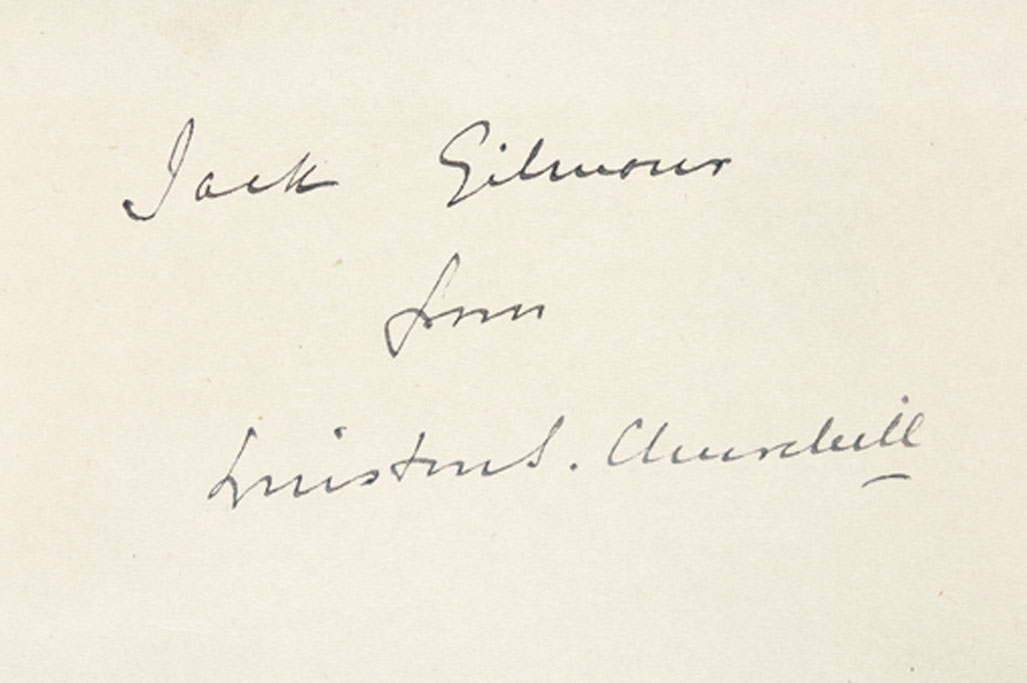 Jack Gilmour
from
Winston S. Churchill